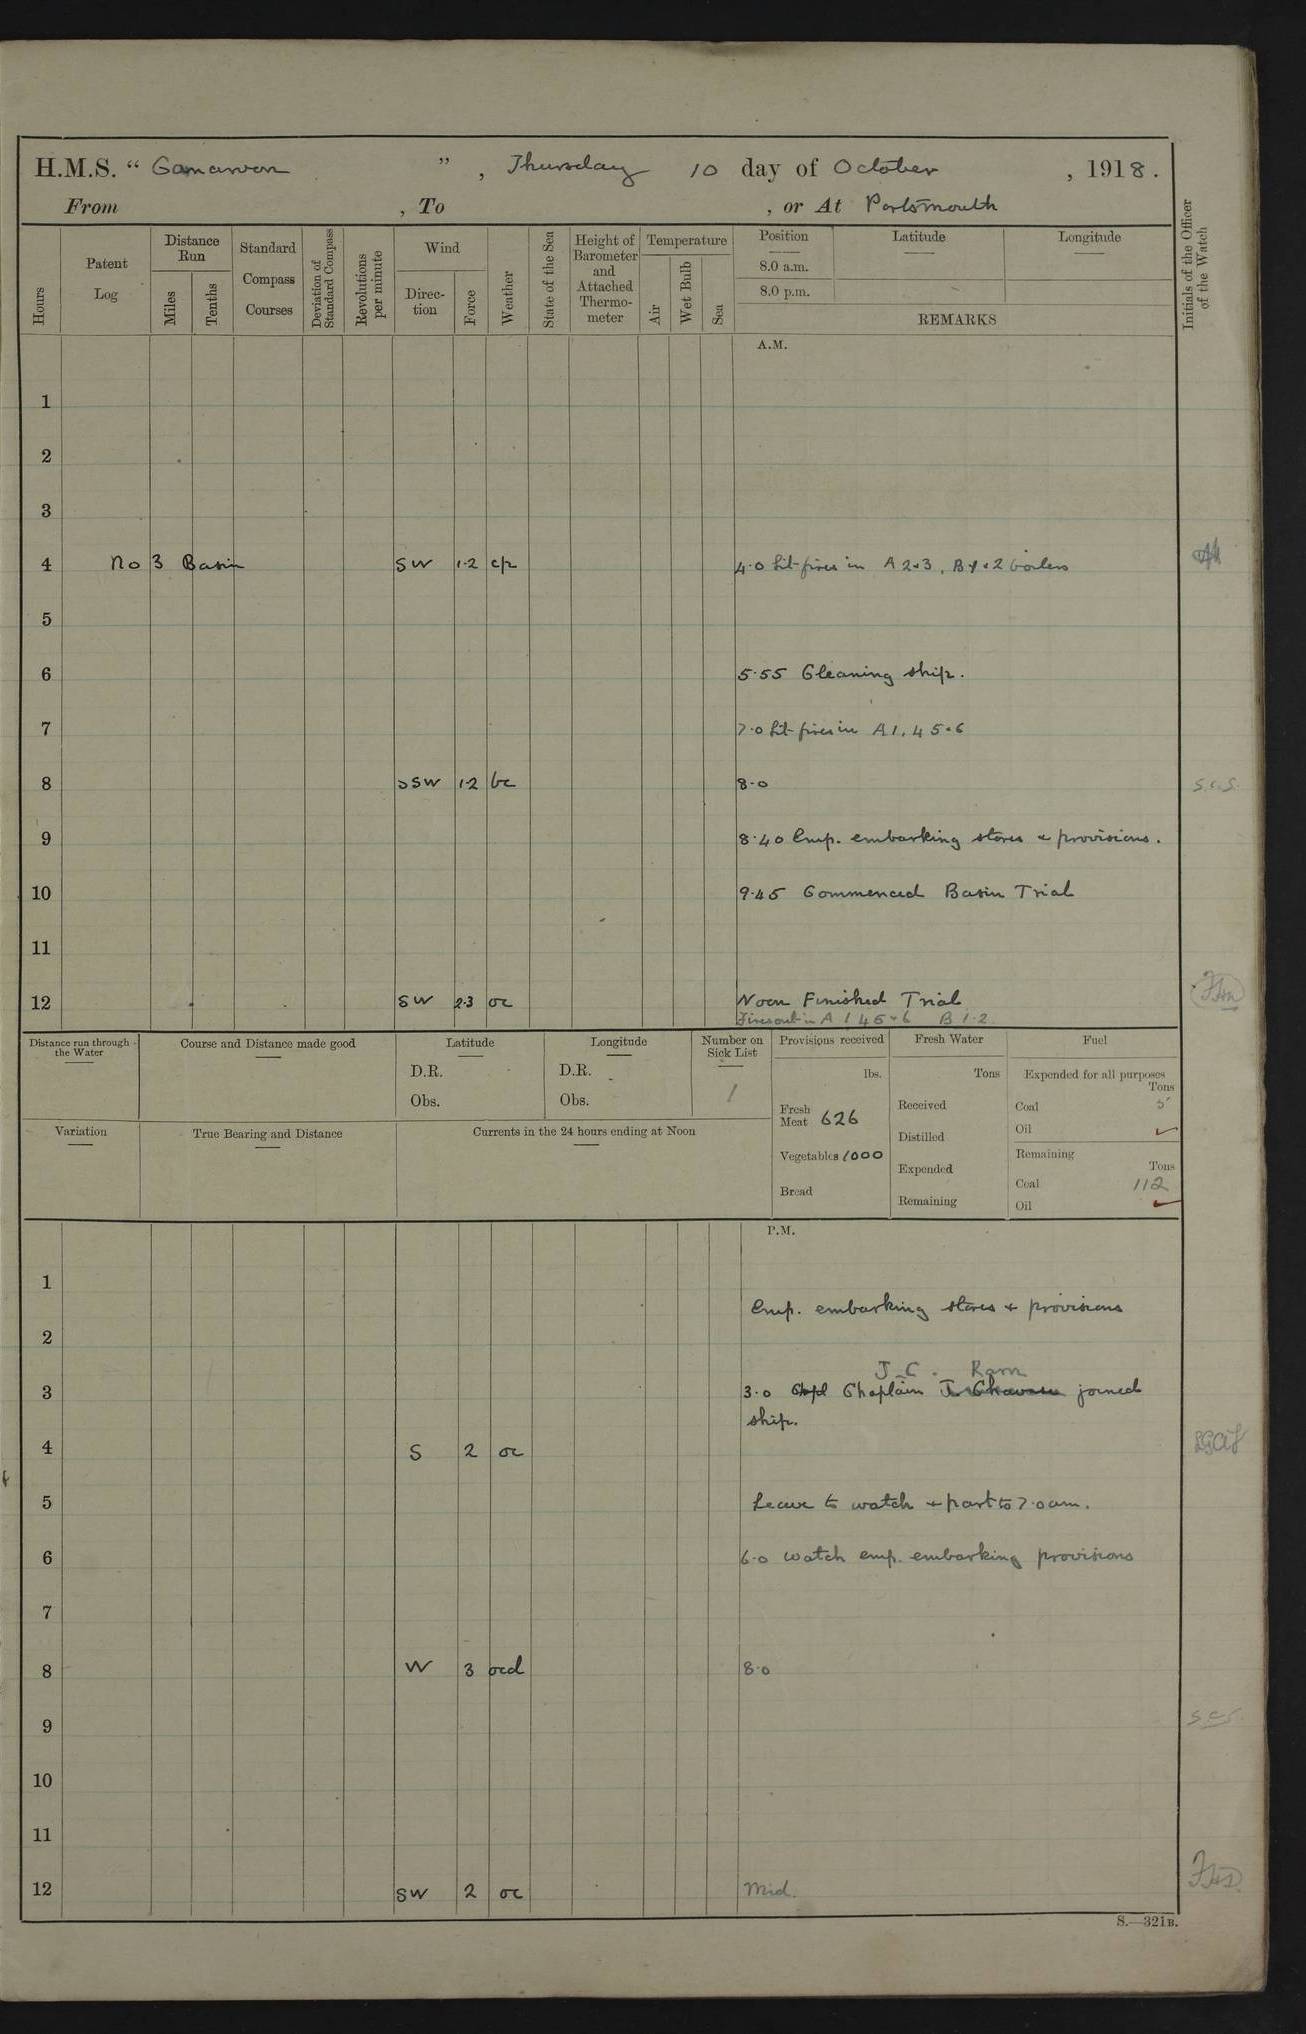 H.M.S. “ Carnarvon ” , Thursday 10 day of October , 1918.
From , To , or At Portsmouth
Hours
Patent Log
Distance Run
Miles
Tenths
Standard Compass Courses
Deviation of Standard Compass
Revolutions per minute
Wind
Direc-tion
Force
Weather
State of the Sea
Height of Barometer and Attached Thermo-meter
Temperature
Air
Wet Bulb
Sea
Position
8.0 a.m.
8.0 p.m.
Latitude
Longitude
REMARKS
Initials of the Officer of the Watch
A.M.
1
2
3
4 No 3 Basin SW 1·2 cp 4·0 Lit fires in A 2·3, B 1·2 boilers
5
6 5·55 Cleaning ship.
7 7·0 Lit fires in A 1, 4 5·6
8 SSW 1·2 bc 8·0 S.C.S.
9 8·40 Emp. embarking stores & provisions.
10 9·45 Commenced Basin Trial
11
12 SW 2·3 oc Noon Finished Trial
Fires out in A 1 4 5·6 B 1·2
Distance run through the Water
Course and Distance made good
Latitude
D.R.
Obs.
Longitude
D.R.
Obs.
Number on Sick List
1
Provisions received
lbs.
Fresh Meat 626
Vegetables 1000
Bread
Fresh Water
Tons
Received
Distilled
Expended
Remaining
Fuel
Expended for all purposes
Tons
Coal 5
Oil
Remaining
Tons
Coal 112
Oil
Variation
True Bearing and Distance
Currents in the 24 hours ending at Noon
P.M.
1
Emp. embarking stores & provisions
2
J.C. Ram
3 3·0 Chaplain J. joined
ship.
4 S 2 oc
5 Leave to watch & part to 7·0 am.
6 6·0 watch emp. embarking provisions
7
8 W 3 ocd 8·0
9 S.C.S.
10
11
12 SW 2 oc Mid.
S.—321B.